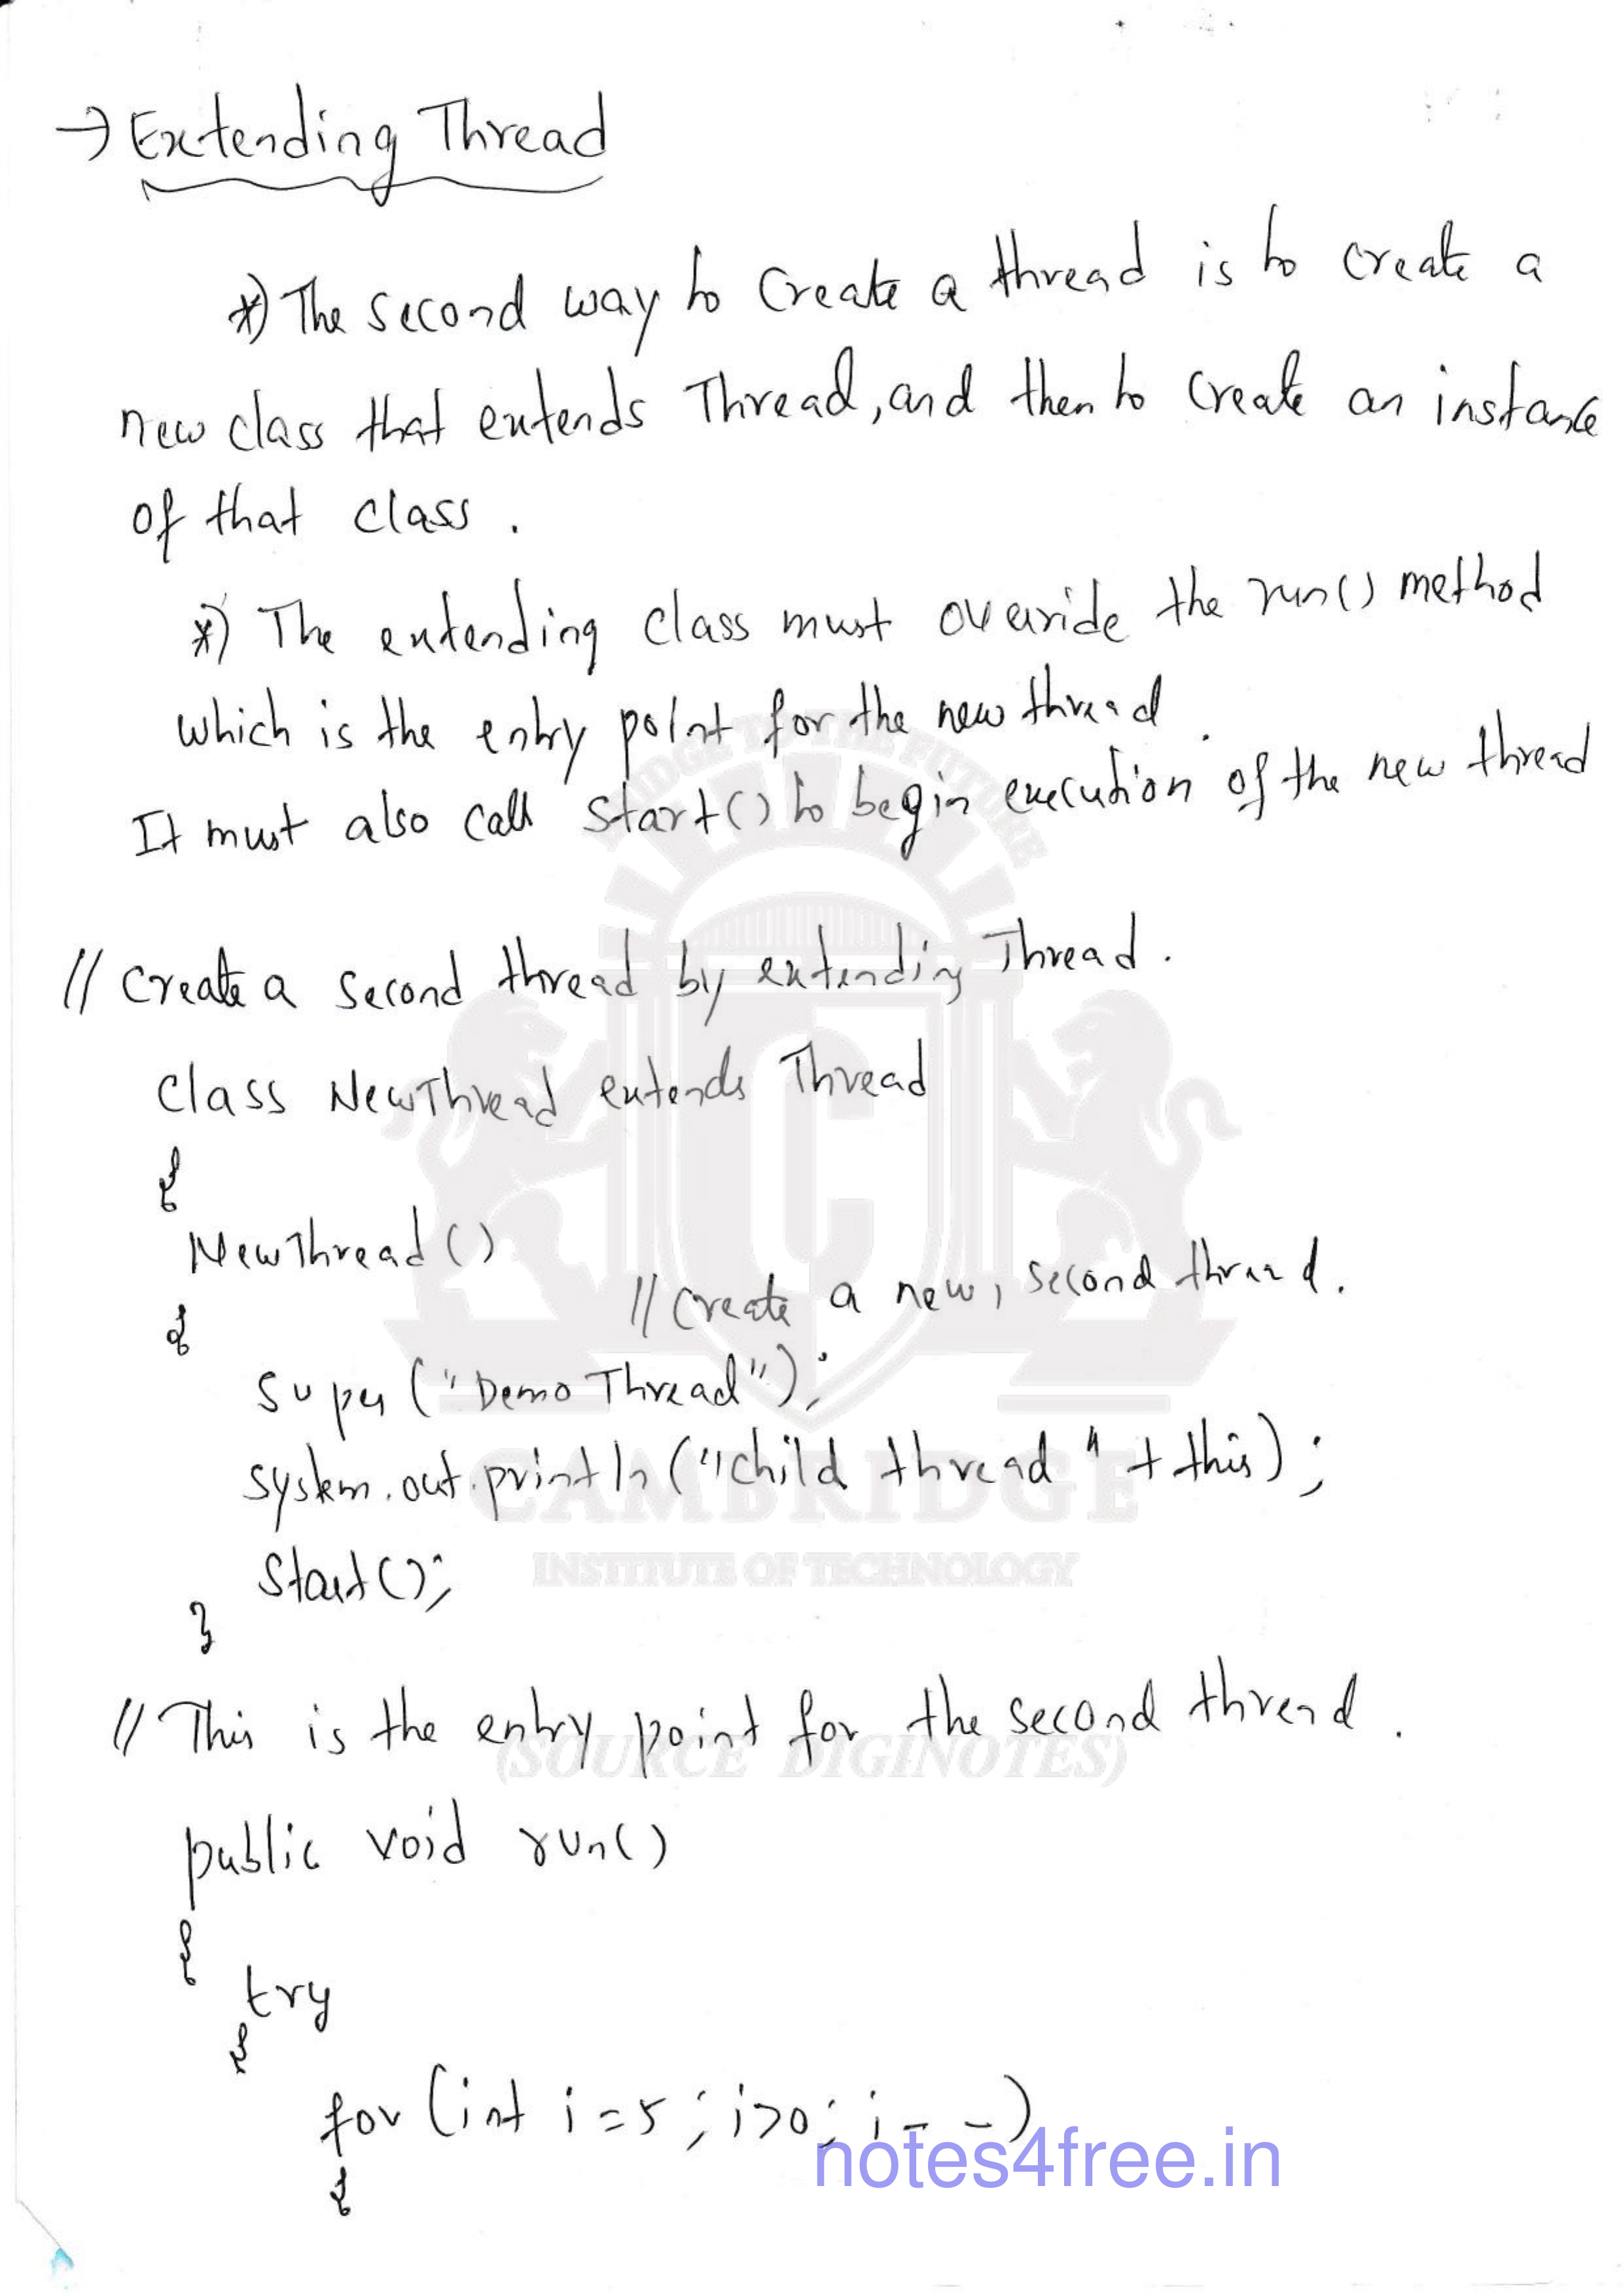 → Extending Thread
*) The second way to create a thread is to create a
new class that extends Thread, and then to create an instance
of that class.
*) The extending class must override the run() method
which is the entry point for the new thread.
It must also call start() to begin execution of the new thread
// Create a second thread by extending Thread.
class NewThread extends Thread
{
NewThread()
// create a new, second thread.
{
super("Demo Thread");
system.out.println("child thread " + this);
start();
}
// This is the entry point for the second thread.
public void run()
{
try
{
for (int i=5; i>0; i--)
{
BRIDGE TO THE FUTURE
C
CAMBRIDGE
INSTITUTE OF TECHNOLOGY
(SOURCE DIGINOTES)
notes4free.in